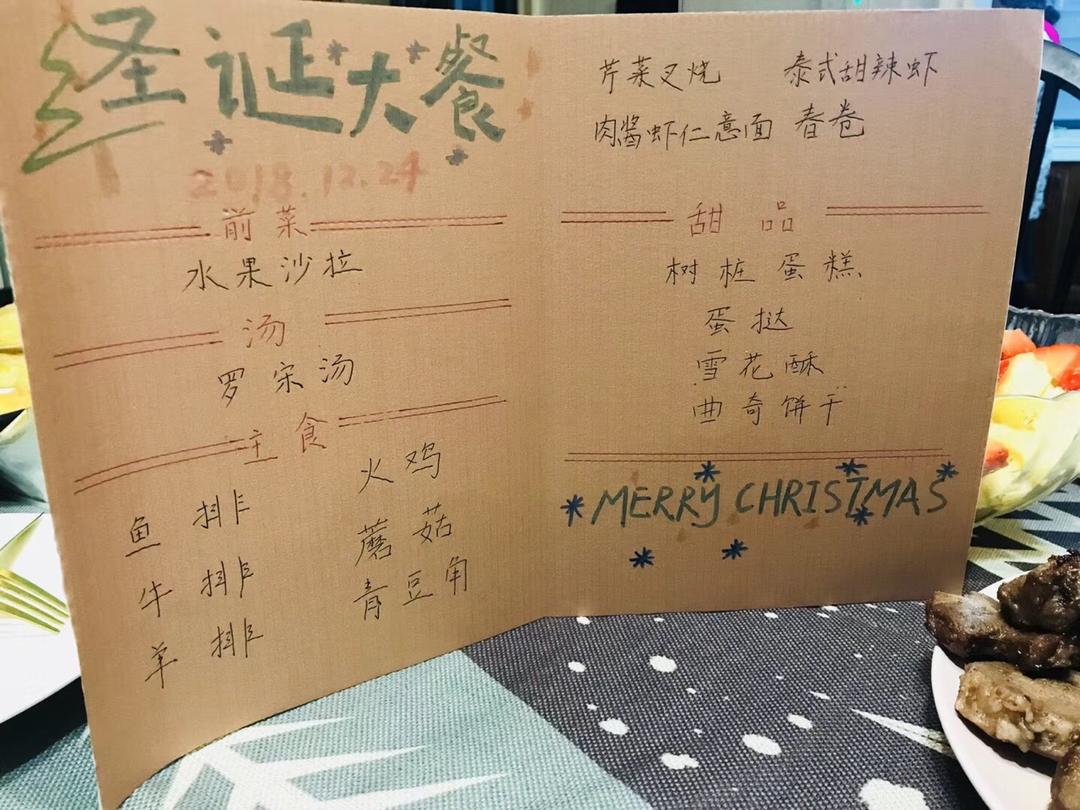 圣诞大餐
2018.12.24
前菜
水果沙拉
汤
罗宋汤
主食
鱼排 火鸡
牛排 蘑菇
羊排 青豆角
芹菜叉烧 泰式甜辣虾
肉酱虾仁意面 春卷
甜品
树桩蛋糕
蛋挞
雪花酥
曲奇饼干
MERRY CHRISTMAS